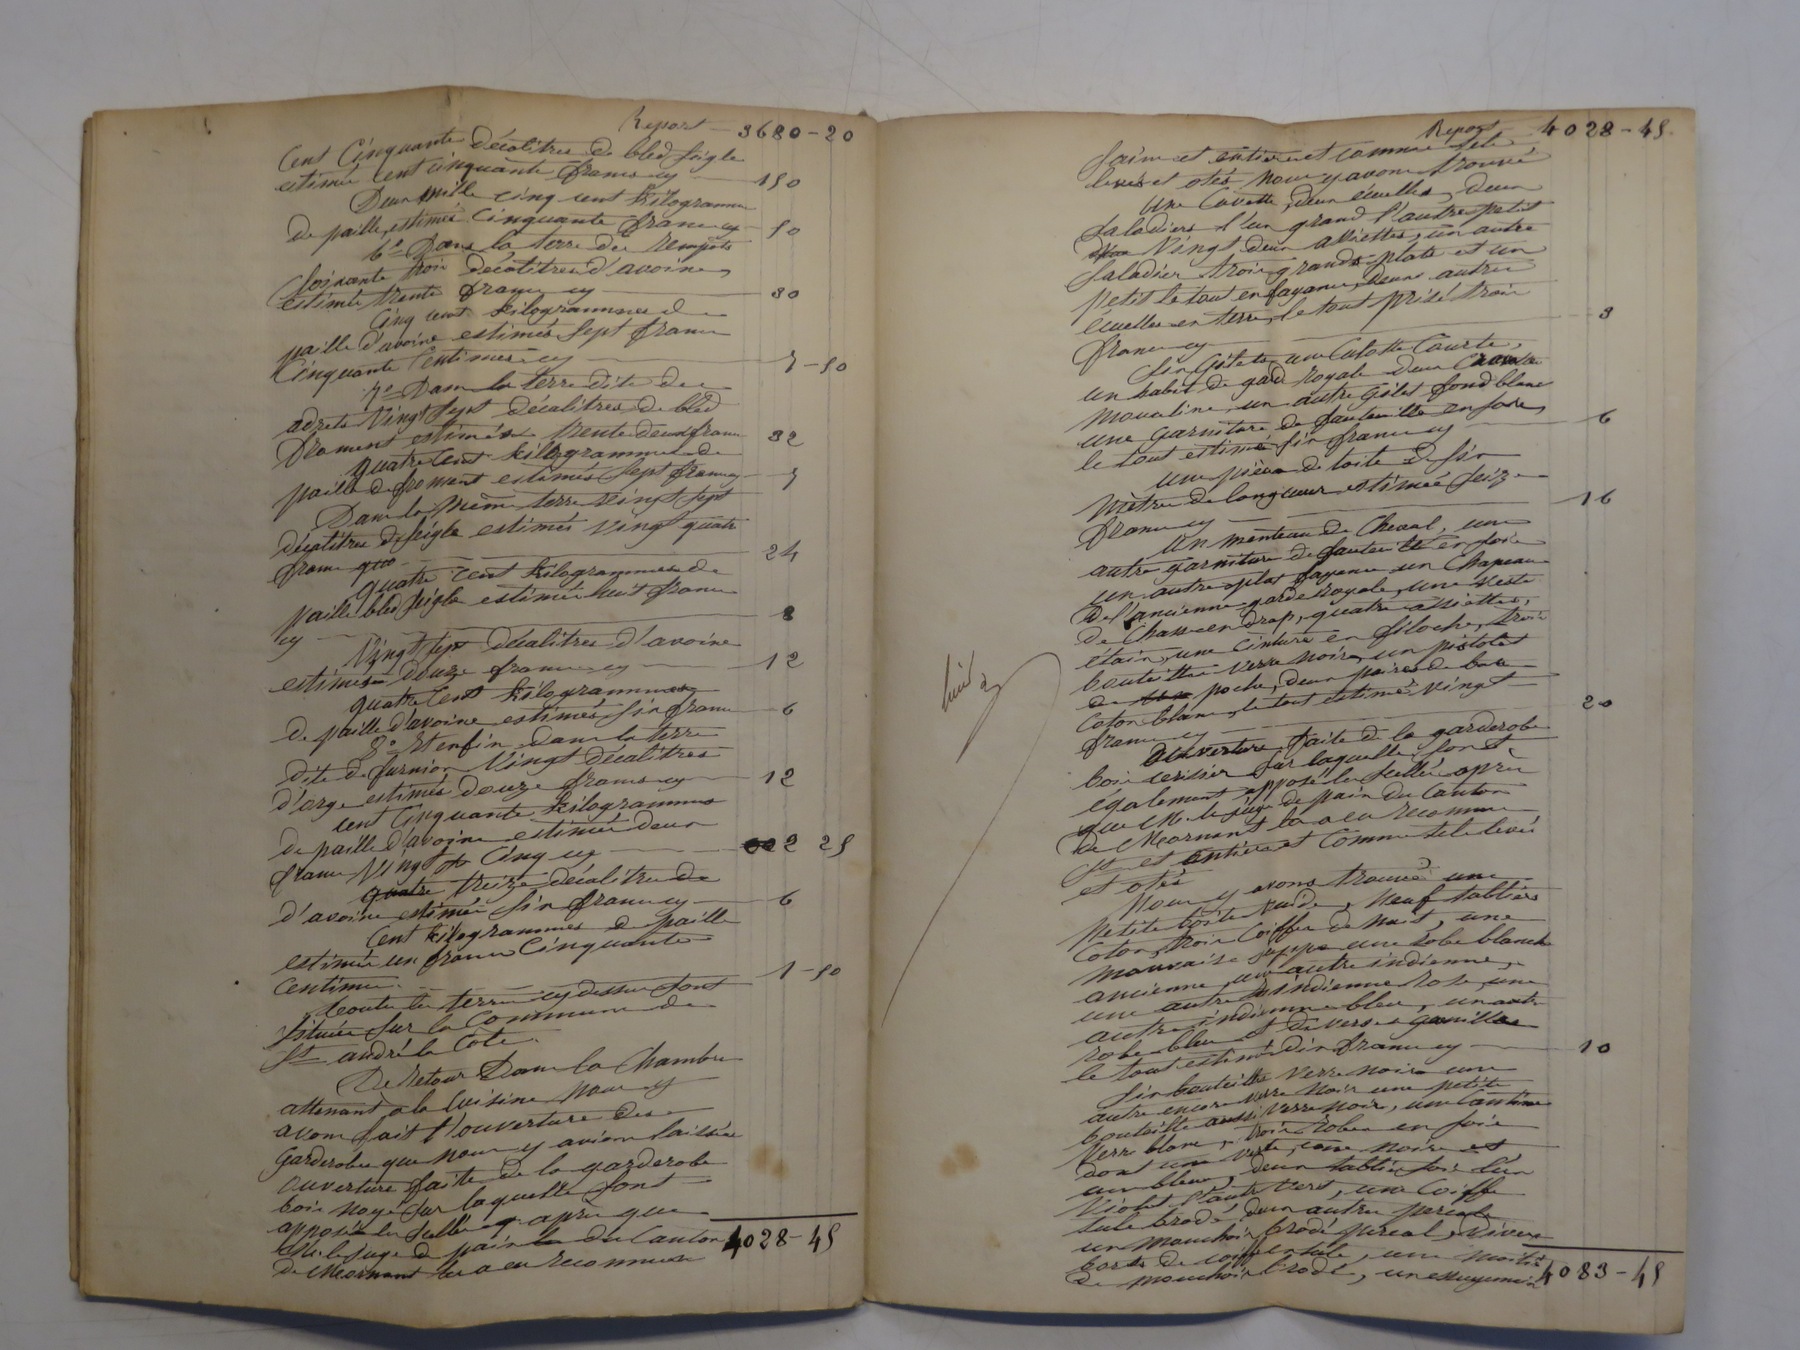 Report — 3680-20
Cent Cinquante décalitres de bled seigle
estimés cent cinquante francs cy — 150
Deux mille cinq cent Kilogrammes
de paille, estimés cinquante francs cy — 50
6° Dans la terre des
soixante trois décalitres d'avoine
estimés trente francs cy — 30
Cinq cent kilogrammes de
paille d'avoine estimés sept francs
Cinquante Centimes cy — 7-50
7° Dans la terre dite des
vingt sept décalitres de bled
froment estimés trente deux francs 32
quatre cent kilogrammes de
paille de froment estimés sept francs — 7
Dans la même terre vingt sept
décalitres de seigle estimés vingt quatre
francs — 24
quatre cent kilogrammes de
paille bled seigle estimés huit francs
cy — 8
Vingt sept décalitres d'avoine
estimés douze francs cy — 12
quatre cent kilogrammes
de paille d'avoine estimés six francs 6
8° Et enfin dans la terre
dite de furnion vingt décalitres
d'orge estimés douze francs cy — 12
cent cinquante kilogrammes
de paille d'avoine estimés deux
francs vingt cinq cy — 2 25
treize décalitres de
d'avoine estimés six francs cy — 6
Cent kilogrammes de paille
estimés un franc cinquante
centimes — 1-50
toutes les terres cy dessus sont
situées sur la Commune de
St andré la Cote.
De Retour Dans la Chambre
attenant a la Cuisine nous y
avons fait l'ouverture des
Garderobes que nous y avions laissées
ouverture faite de la garderobe
bois noyer sur laquelle sont
apposés les scellés après que
Mr le juge de paix du Canton
de Mornant les a eu reconnus
4028-45
Report 4028-45
sains et entiers et comme tels
levés et otés nous y avons trouvé
une Cuvette, deux écuelles, deux
saladiers l'un grand l'autre petit
vingt deux assiettes, un autre
saladier trois grands plats et un
petit le tout en fayance, deux autres
écuelles en terre, le tout prisé trois
francs cy — 3
six gilets, une Culotte Courte,
un habit de garde royale deux Cravates
mousseline, un autre gilet fond blanc
une garniture de fauteuille en soie,
le tout estimé six francs cy — 6
une pièce de toile de six
mètres de longueur estimée seize
francs cy — 16
un manteau de Cheval, une
autre garniture de fauteuille en soie
un autre plat fayence un Chapeau
de l'ancienne garde royale, une veste
de Chasse en drap, quatre assiettes,
étain, une ceinture en filoche, trois
bouteilles verre noire, un pistolet
de poche, deux paires de bas
coton blanc, le tout estimé vingt
francs cy — 20
ouverture faite de la garderobe
bois cerisier sur laquelle sont
également apposé les scellés après
que Mr le juge de paix du Canton
de Mornant la a eu reconnue
et entières et Comme tels levés
et otés
Nous y avons trouvé une
petite boîte vuide, neuf tabliers
Coton, trois Coiffes de nuit, une
mauvaise juppe une robe blanche
ancienne, une autre indienne,
une autre indienne rose, une
autre indienne bleu, un autre
robe bleu et diverses guenilles
le tout estimé dix francs cy — 10
six bouteilles verre noire une
autre encore verre noir une petite
bouteille aussi verre noir, une Cantine
verre blanc, trois robes en soie
dont une verte, une noire et
une bleue, deux tabliers soie l'un
violet l'autre vert, une Coiffe
tule brodé, deux autres percale
un mouchoir brodé percal, divers
bords de coiffe en tule, une moitié
de mouchoir brodé, un essuyemain
4083-45